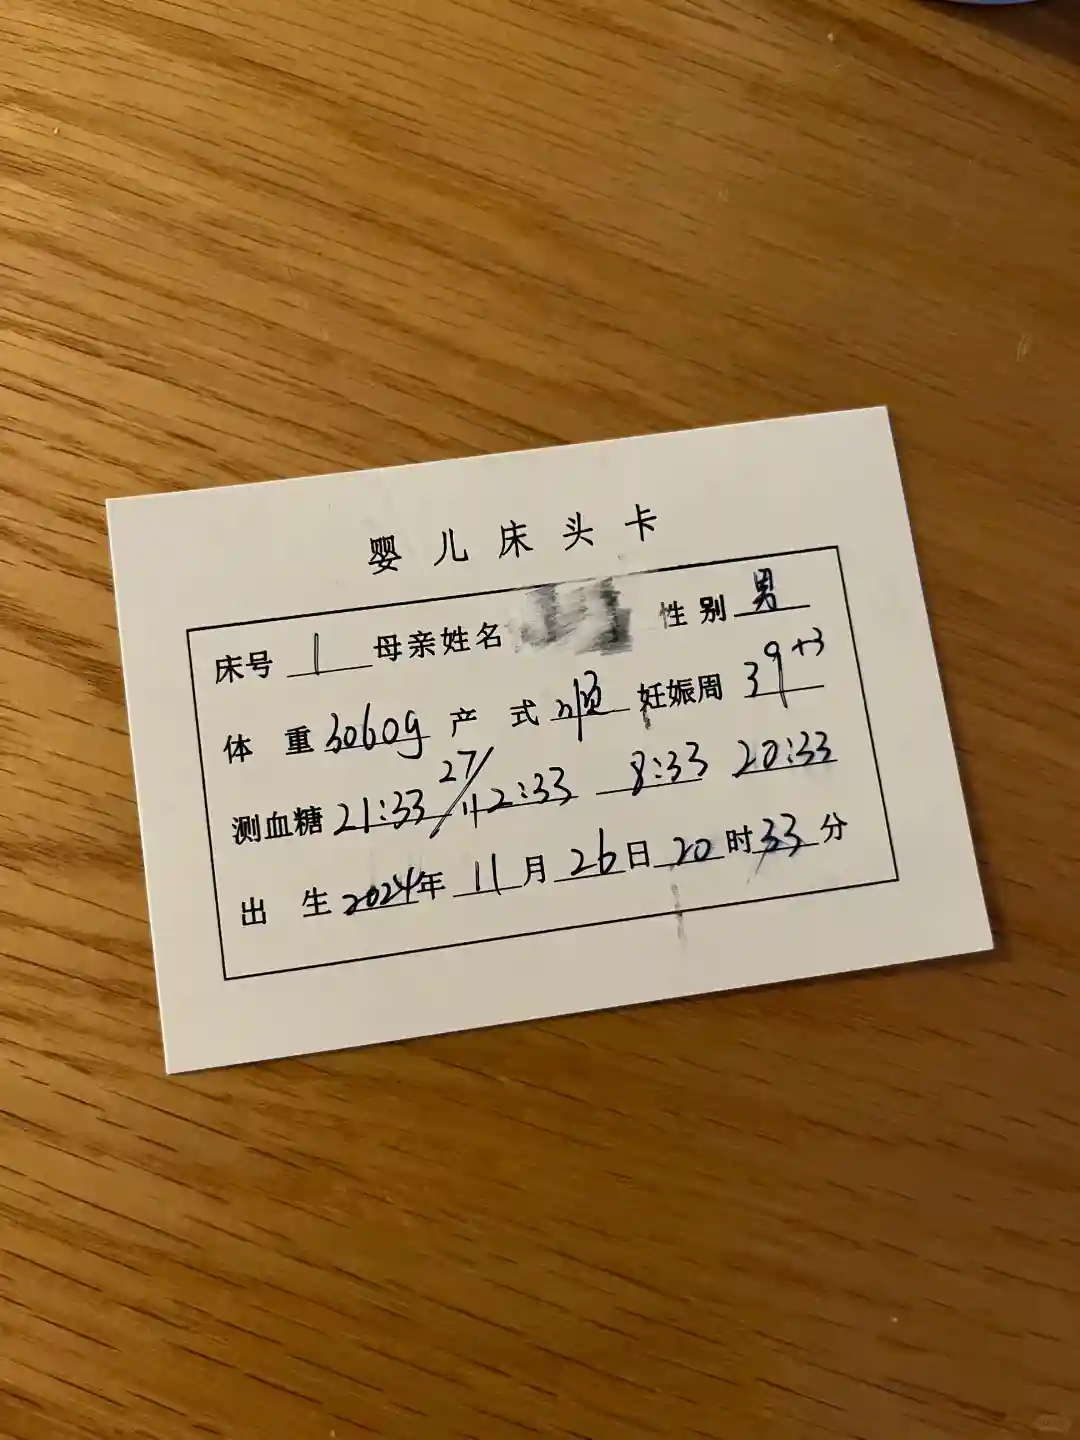 婴儿床头卡
床号 1 母亲姓名 性别 男
体重 3060g 产式 顺 妊娠周 39+3
测血糖 21:33 27/11 2:33 8:33 20:33
出生 2024年 11月 26日 20时 33分